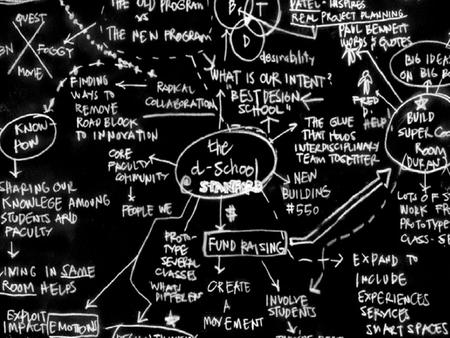 THE OLD PROGRAM
THE NEW PROGRAM
QUEST
FOGGT
MOVE
B
T
D
desirability
INSPIRES
REAL PROJECT PLANNING
PAUL BENNETT
WORDS & QUOTES
BIG IDEAS
ON BIG
FINDING
WAYS TO
REMOVE
ROAD BLOCK
TO INNOVATION
RADICAL
COLLABORATION
WHAT IS OUR INTENT?
"BEST DESIGN
SCHOOL"
THE GLUE
THAT HOLDS
INTERDISCIPLINARY
TEAM TOGETHER
FRED
HELP
BUILD
SUPER COO
ROOM
DURAN
KNOW-
POW
CORE
FACULTY
COMMUNITY
PEOPLE WE
the
d-school
@ STANFORD
NEW
BUILDING
#550
SHARING OUR
KNOWLEGE AMONG
STUDENTS AND
FACULTY
LIVING IN SAME
ROOM HELPS
EXPLOIT
IMPACT
EMOTION!
PROTO-
TYPE
SEVERAL
CLASSES
WHAT
DIFFEREN
$
FUND RAISING
CREATE
A
MOVEMENT
INVOLVE
STUDENTS
LOTS OF S
WORK FA
PROTOTYPE
CLASS-SE
EXPAND TO
INCLUDE
EXPERIENCES
SERVICES
SMART SPACES